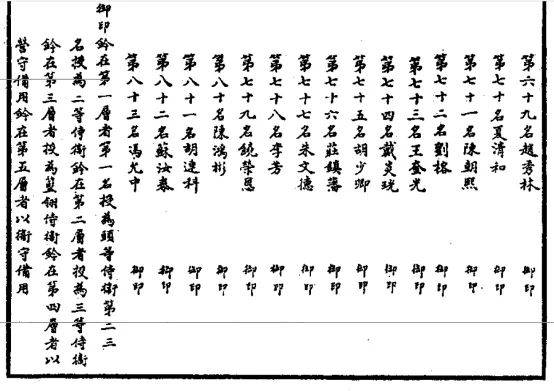 第六十九名趙秀林 御印
第七十名夏清和 御印
第七十一名陳朝熙 御印
第七十二名劉榕 御印
第七十三名王奎光 御印
第七十四名戴炎珖 御印
第七十五名胡少卿 御印
第七十六名莊鎮藩 御印
第七十七名朱文德 御印
第七十八名李芳 御印
第七十九名饒榮恩 御印
第八十名陳鴻彬 御印
第八十一名胡連科 御印
第八十二名蘇汝泰 御印
第八十三名馮允中 御印
御印鈐在第一層者第一名授為頭等侍衛第二三
名授為二等侍衛鈐在第二層者授為三等侍衛
鈐在第三層者授為藍翎侍衛鈐在第四層者以
營守備用鈐在第五層者以衛守備用